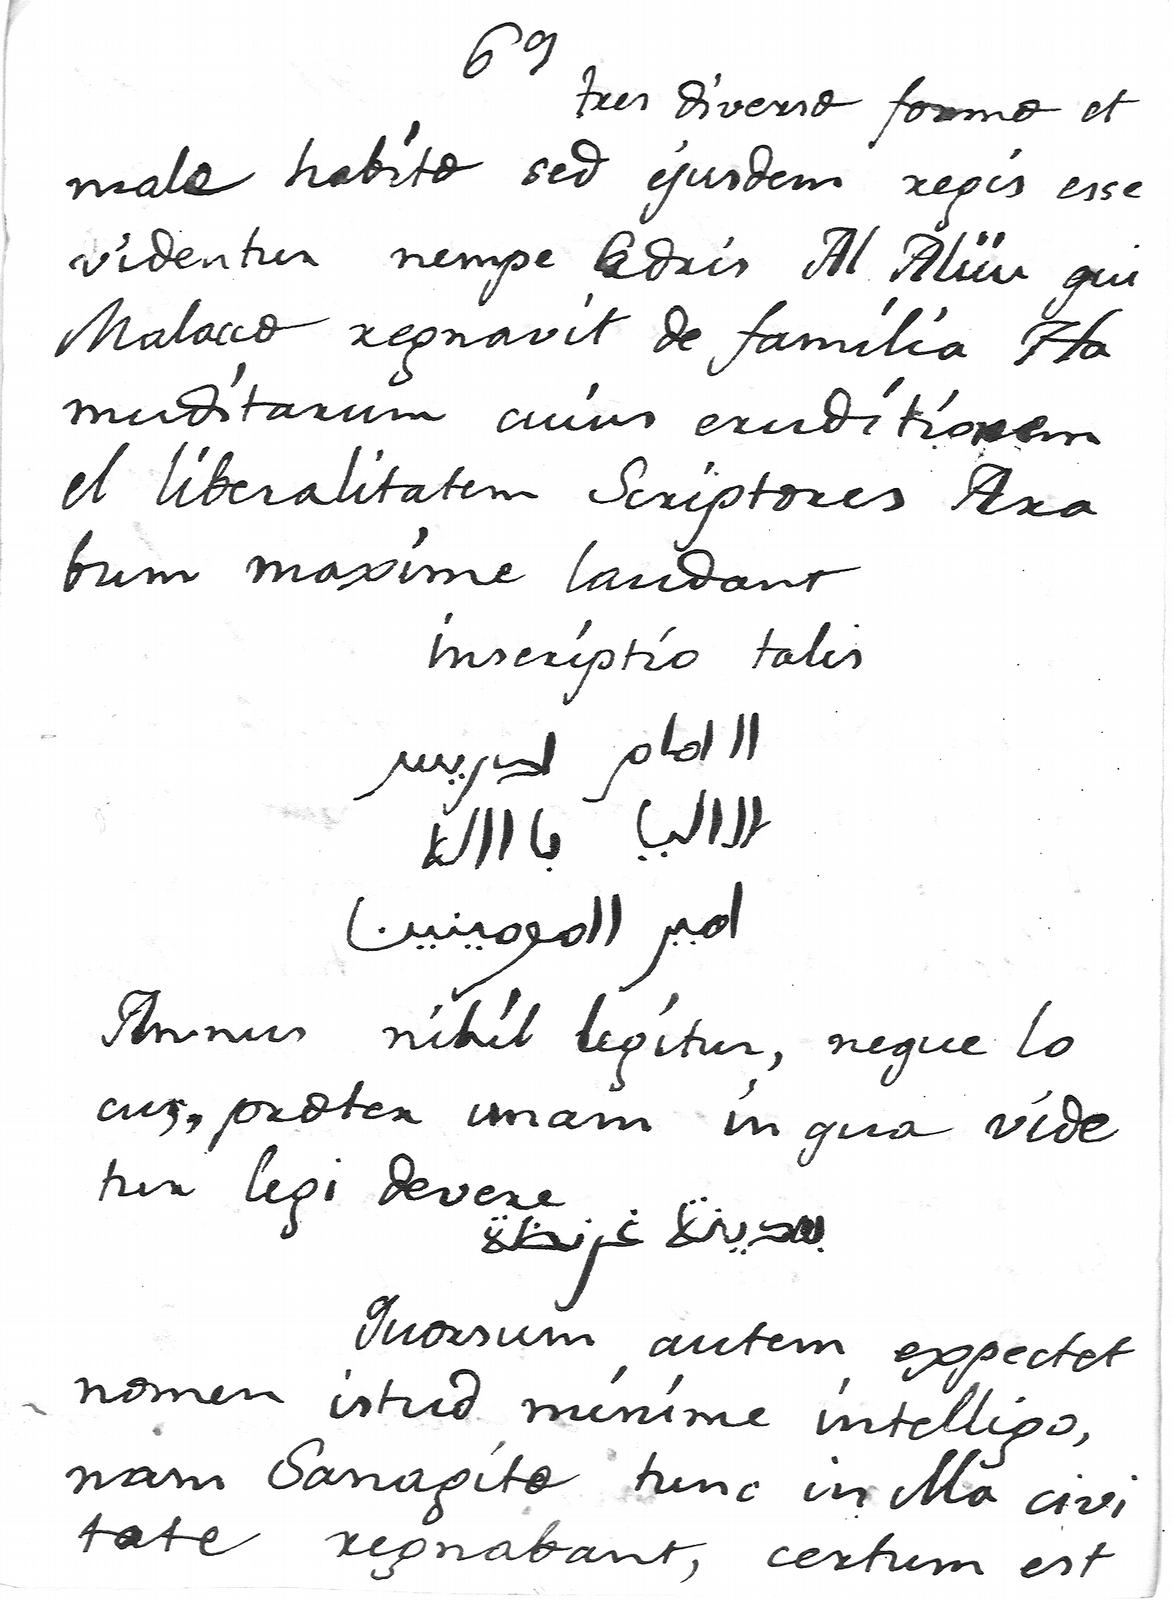 69
tres diversæ formæ et
malæ habitæ sed ejusdem regis esse
videntur nempe Edris Al Aliiu qui
Malaccæ regnavit de familia Ha
muditarum cuius eruditionem
et liberalitatem Scriptores Ara
bum maxime laudant
inscriptio talis
الامام ادريس
العالي بالله
امير المومينين
Annus nihil legitur, neque lo
cus, præter unam in qua vide
tur legi devere
بمدينة غرنطة
Quorsum autem expectet
nomen istud minime intelligo,
nam Sanagitæ tunc in illa civi
tate regnabant, certum est